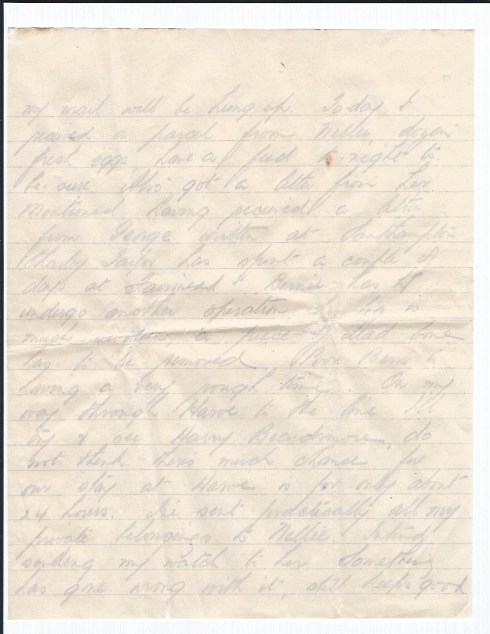 my mail will be hung up. Today I
received a parcel from Nellie, dozen
fresh eggs have a feed to night to
be sure. Also got a letter from her
mentioned having received a letter
from George written at Southampton
Charly Taylor has spent a couple of
days at "Fairmead". Bernie has to
undergo another operation his is
much swollen, a piece of dead bone
has to be removed. Poor Bern is
having a very rough time. On my
way through Havre to the line I'll
try & see Harry Beardmore, do
not think theres much chance for
our stay at Havre is for only about
24 hours. I've sent practically all my
private belongings to Nellie. Intend
sending my watch to her something
has gone wrong with it, still keeps good